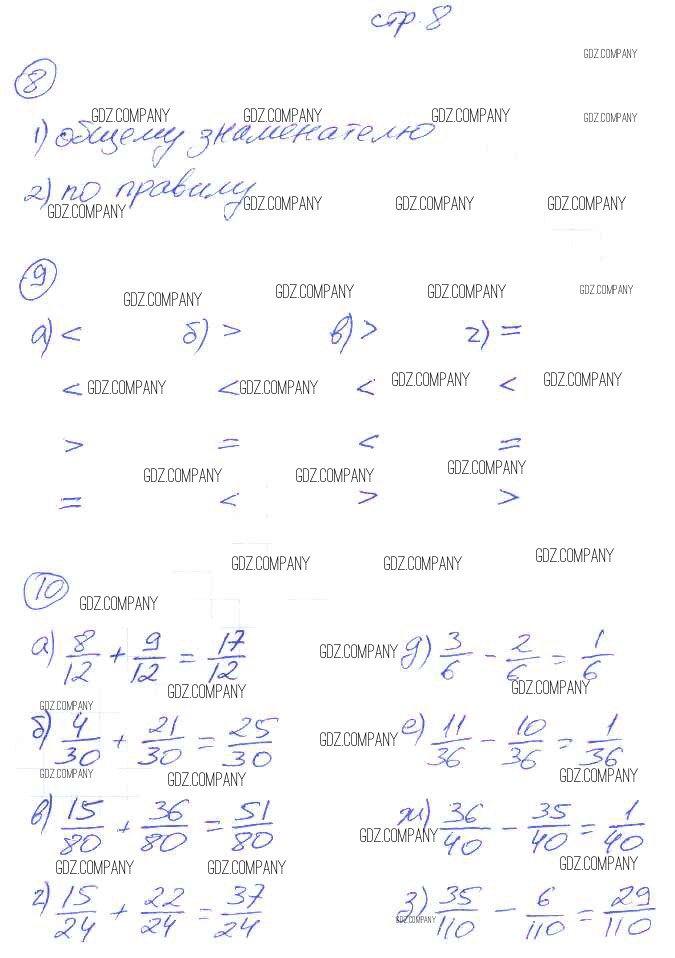 стр. 8
GDZ.COMPANY
8
GDZ.COMPANY GDZ.COMPANY GDZ.COMPANY GDZ.COMPANY
1) общему знаменателю
2) по правилу
GDZ.COMPANY GDZ.COMPANY GDZ.COMPANY GDZ.COMPANY
9
GDZ.COMPANY GDZ.COMPANY GDZ.COMPANY GDZ.COMPANY
а) < б) > в) > г) =
< GDZ.COMPANY < GDZ.COMPANY < GDZ.COMPANY < GDZ.COMPANY
> = < =
GDZ.COMPANY GDZ.COMPANY GDZ.COMPANY
= < > >
GDZ.COMPANY GDZ.COMPANY GDZ.COMPANY
10
GDZ.COMPANY
а) 8/12 + 9/12 = 17/12 GDZ.COMPANY д) 3/6 - 2/6 = 1/6
GDZ.COMPANY GDZ.COMPANY GDZ.COMPANY
б) 4/30 + 21/30 = 25/30 GDZ.COMPANY е) 11/36 - 10/36 = 1/36
GDZ.COMPANY GDZ.COMPANY GDZ.COMPANY
в) 15/80 + 36/80 = 51/80 GDZ.COMPANY ж) 36/40 - 35/40 = 1/40
GDZ.COMPANY GDZ.COMPANY GDZ.COMPANY
г) 15/24 + 22/24 = 37/24 GDZ.COMPANY з) 35/110 - 6/110 = 29/110